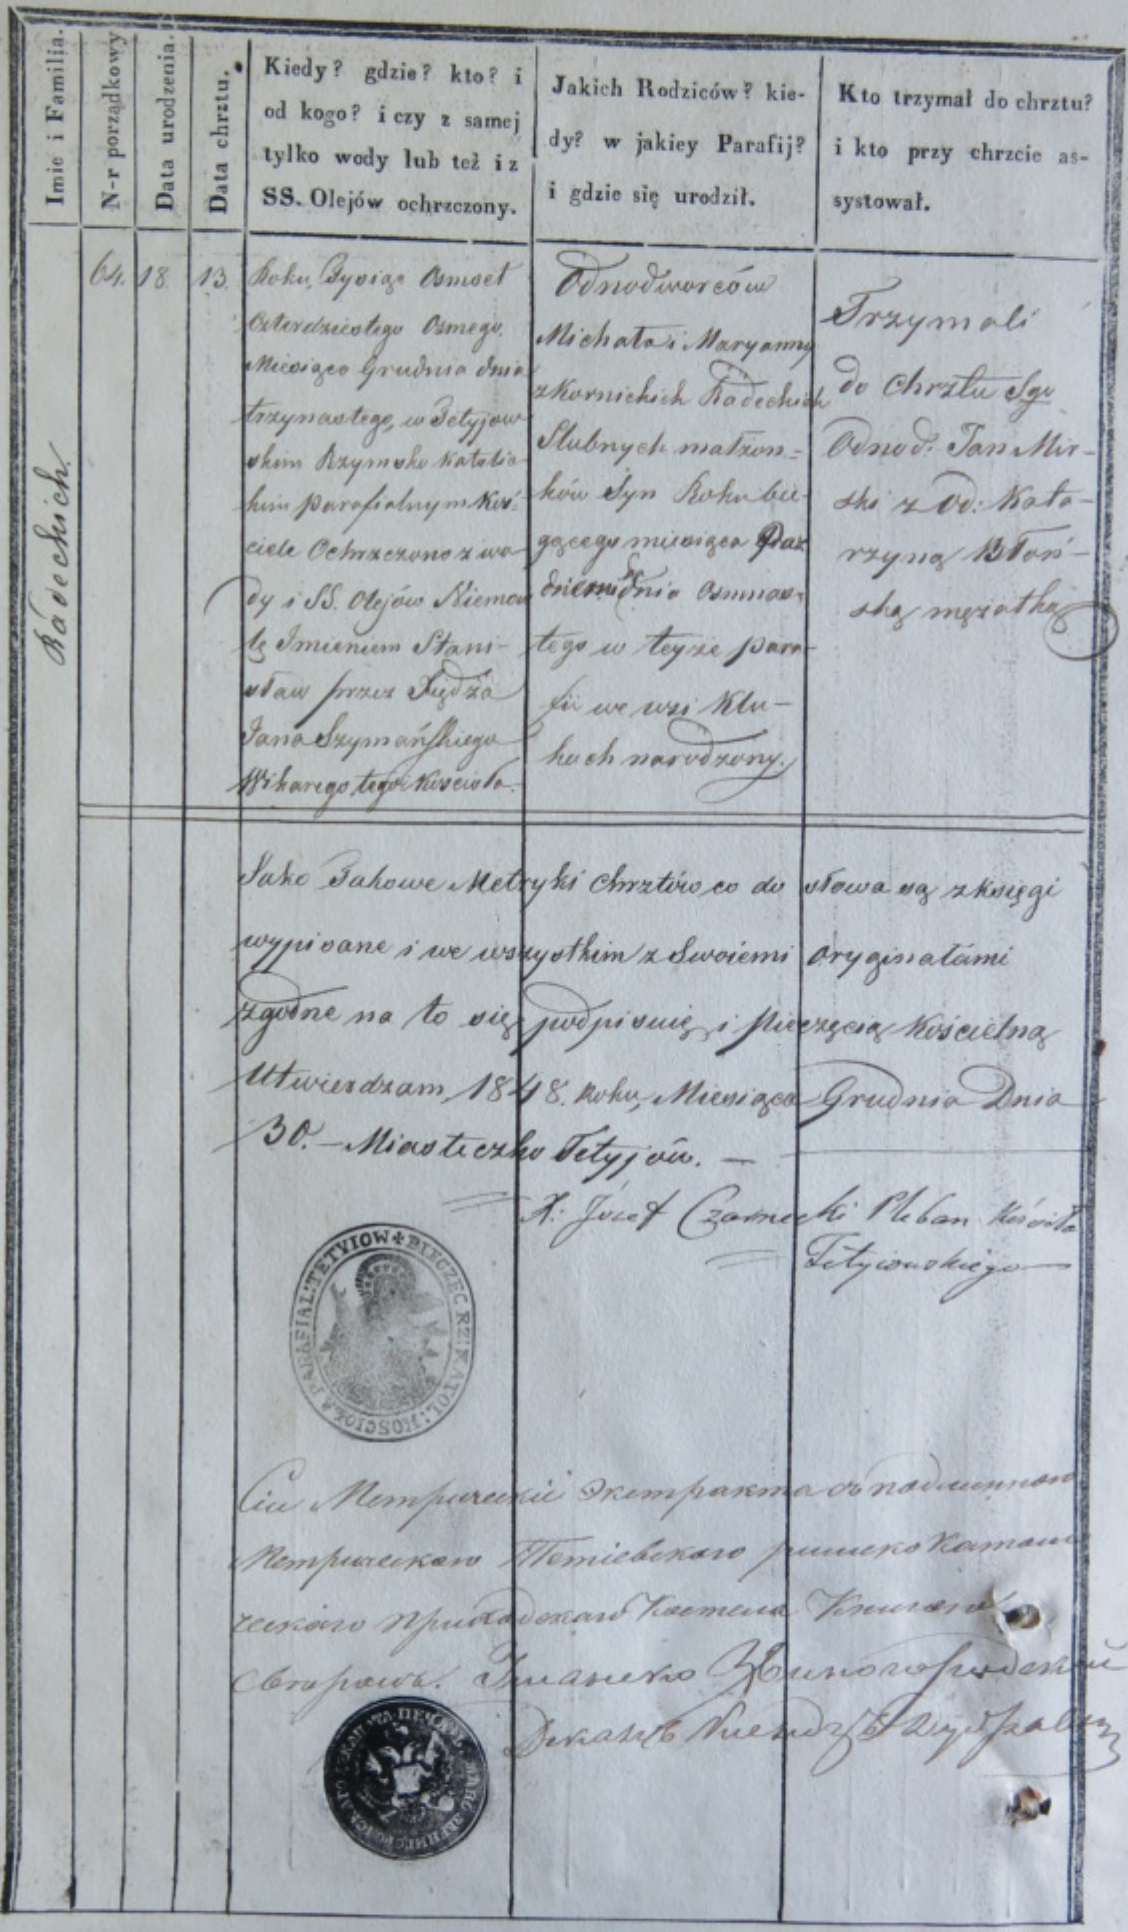 Imie i Familia.
N-r porządkowy
Data urodzenia.
Data chrztu.
Kiedy? gdzie? kto? i
od kogo? i czy z samej
tylko wody lub też i z
SS. Olejów ochrzczony.
Jakich Rodziców? kie-
dy? w jakiey Parafij?
i gdzie się urodził.
Kto trzymał do chrztu?
i kto przy chrzcie as-
systował.
Radeckich.
64.
18.
13.
Roku Tysiąc Osmset
Czterdziestego Osmego.
Miesiąca Grudnia dnia
trzynastego, w Tetyjow
skim Rzymsko Katolic
kim parafialnym Koś-
ciele Ochrzczono z wo
dy i SS. Olejów Niemow
lę Imieniem Stani-
sław przez Xiędza
Jana Szymańskiego
Wikarego tegoż Kościoła.
Odnodworców
Michała i Maryanny
z Kornickich Radeckich
Slubnych małżon=
ków Syn Roku bie-
gącego miesiąca Paz
dziernika dnia Osmnas-
tego w teyże para-
fii we wsi Klu-
kach narodzony.
Trzymali
do Chrztu Sgo
Odnod: Jan Mir-
ski z Od: Kata-
rzyną Błoń-
ską mężatką
Jako Takowe Metryki Chrztów co do słowa są z księgi
wypisane i we wszystkim z Swoiemi oryginałami
zgodne na to się podpisuię i Pieczęcią Kościelną
Utwierdzam, 1848. Roku, Miesiąca Grudnia Dnia
30. – Miasteczko Tetyjów. —
X: Józef Czarnecki Pleban Kościoła
Tetyiowskiego
PIECZĘC RZ: KATOL: KOSCIOŁA PARAFIAL: TETYIOW
Сіи Метрическіе Экстракта съ подлинною
Метрическою Тетіевскаго римско Католи
ческаго приходскаго Костела Книгою
сверялъ. Липовецко Звиногородскій
Деканъ Ксендзъ